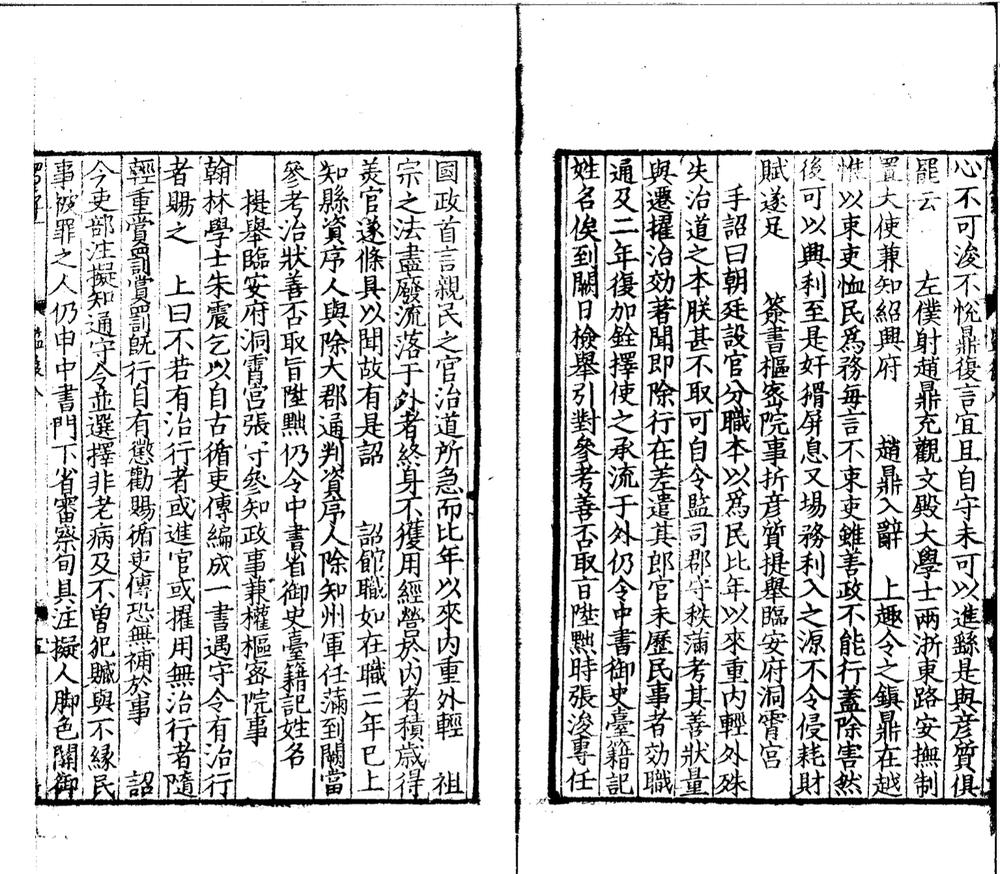 心不可浚不悅鼎復言宜且自守未可以進繇是與彥質俱
罷云　左僕射趙鼎充觀文殿大學士兩浙東路安撫制
置大使兼知紹興府　趙鼎入辭　上趣令之鎮鼎在越
惟以束吏恤民爲務每言不束吏雖善政不能行蓋除害然
後可以興利至是奸猾屏息又場務利入之源不令侵耗財
賦遂足　簽書樞密院事折彥質提舉臨安府洞霄宮
手詔曰朝廷設官分職本以爲民比年以來重內輕外殊
失治道之本朕甚不取可自今監司郡守秩滿考其善狀量
與遷擢治効著聞即除行在差遣其郎官未歷民事者効職
通及二年復加銓擇使之承流于外仍令中書御史臺籍記
姓名俟到闕日檢舉引對參考善否取旨陞黜時張浚專任
國政首言親民之官治道所急而比年以來內重外輕　祖
宗之法盡廢流落于外者終身不獲用經營於內者積歲得
美官遂條具以聞故有是詔　詔館職如在職二年已上
知縣資序人與除大郡通判資序人除知州軍任滿到闕當
參考治狀善否取旨陞黜仍令中書省御史臺籍記姓名
提舉臨安府洞霄宮張守參知政事兼權樞密院事
翰林學士朱震乞以自古循吏傳編成一書遇守令有治行
者賜之　上曰不若有治行者或進官或擢用無治行者隨
輕重賞罰賞罰旣行自有懲勸賜循吏傳恐無補於事　詔
今吏部注擬知通守令並選擇非老病及不曾犯贓與不緣民
事被罪之人仍申中書門下省審察旬具注擬人脚色關御